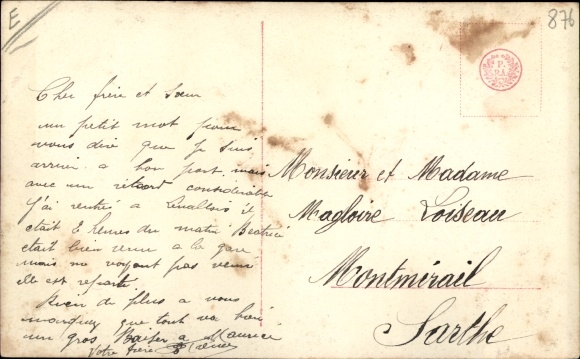 E
876
P.
Cher frère et Sœur
un petit mot pour
vous dire que je suis
arrivé a bon port mais
avec un retard considerable
j'ai rentré a Levallois il
etait 2 heures du matin Beatrice
etait bien venu a la gare
mais ne voyant pas venir
elle est reparti
Rien de plus a vous
marquer que tout va bien
un gros Baiser a Maurice
Votre frère
Monsieur et Madame
Magloire Loiseau
Montmirail
Sarthe